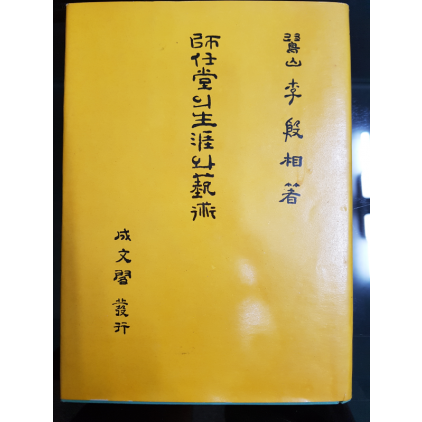 鷺山 李殷相 著
師任堂의 生涯와 藝術
成文閣 發行